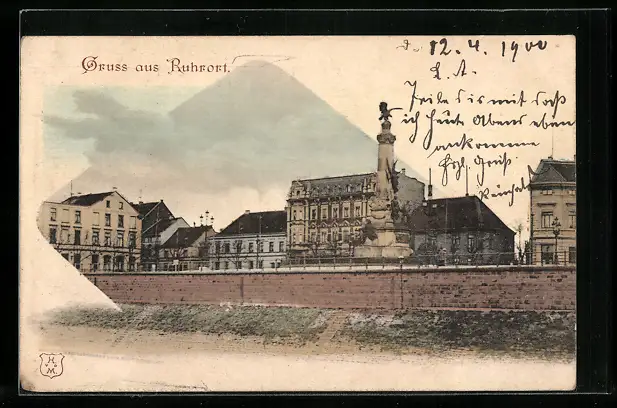 Gruss aus Ruhrort.
d. 12. 4. 1900
L. A.
Teile dir mit daß
ich heute Abend eben
ankomme
Hrzl. Gruß
H. v.d. M.